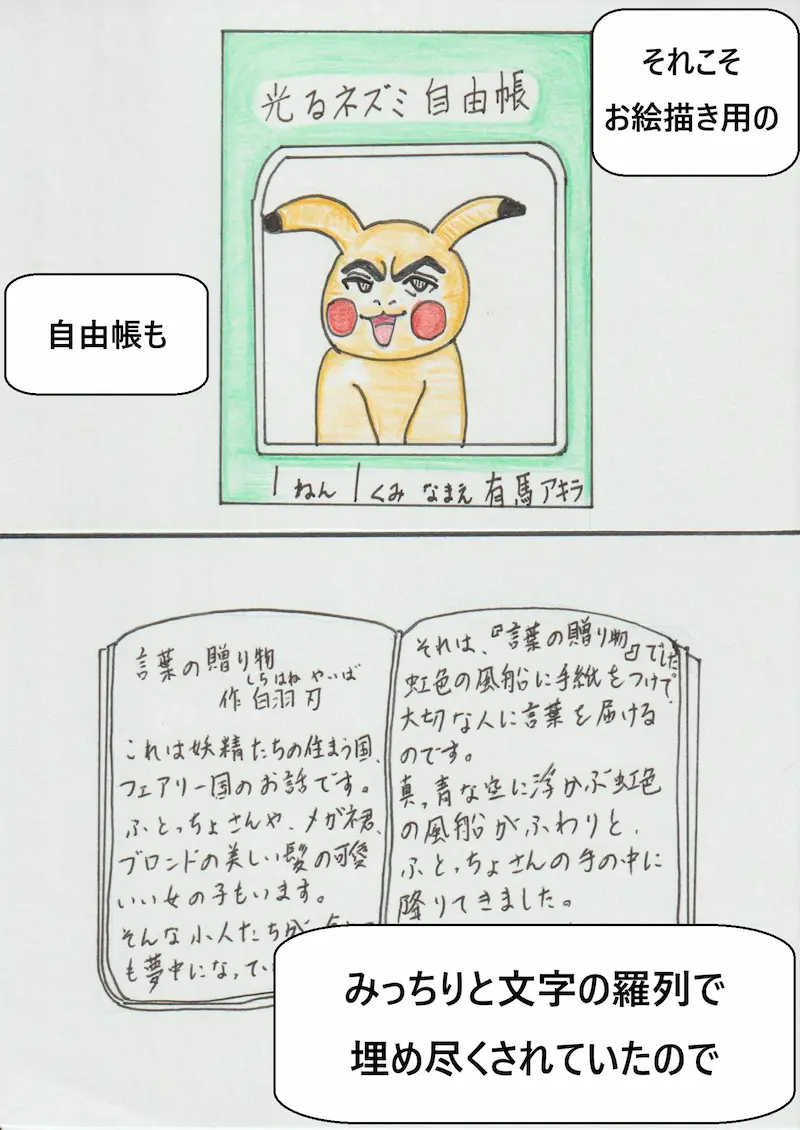 それこそ
お絵描き用の
光るネズミ自由帳
自由帳も
1ねん1くみ なまえ 有馬アキラ
言葉の贈り物
しらはね やいば
作 白羽刃
これは妖精たちの住まう国、
フェアリー国のお話です。
ふとっちょさんや、メガネ君、
ブロンドの美しい髪の可愛
いい女の子もいます。
そんな小人たちが
も夢中になってい
それは、『言葉の贈り物』でした。
虹色の風船に手紙をつけて、
大切な人に言葉を届ける
のです。
真っ青な空に浮かぶ虹色
の風船がふわりと、
ふとっちょさんの手の中に
降りてきました。
みっちりと文字の羅列で
埋め尽くされていたので